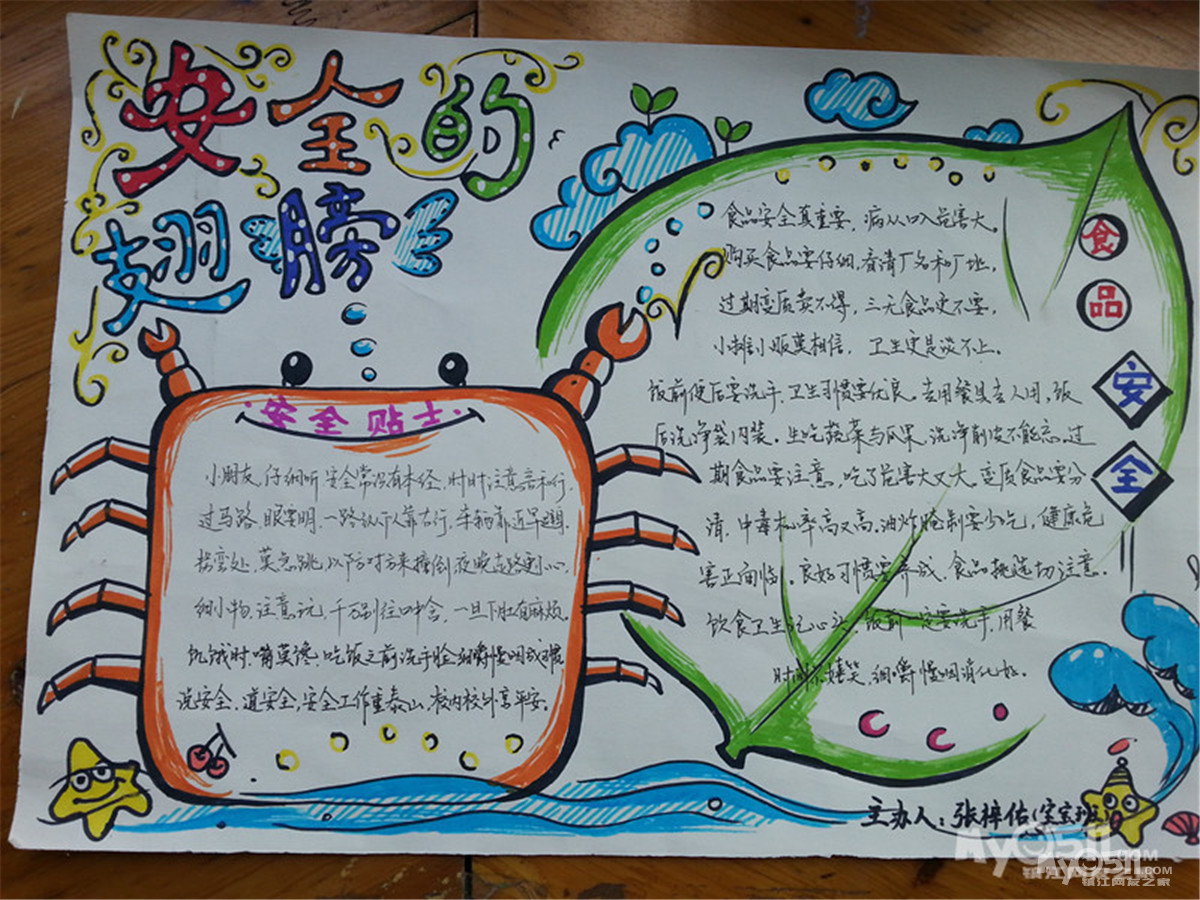 安全的
翅膀
安全贴士
小朋友,仔细听,安全常识有本经,时时注意言和行,
过马路,眼要明,一路纵行靠右行,车辆靠近早避明.
拐弯处,莫急跳,以防对方来撞倒,夜晚走路更小心,
细小物,注意玩,千万别往口中含,一旦下肚有麻烦.
饥饿时,嘴莫馋,吃饭之前洗手脸,细嚼慢咽成习惯
说安全,道安全,安全工作重泰山,校内校外享平安.
食品安全
食品安全真重要,病从口入危害大。
购买食品要仔细,看清厂名和厂址,
过期变质卖不得,三无食品更不要,
小摊小贩莫相信,卫生更是谈不上。
饭前便后要洗手,卫生习惯要优良。专用餐具专人用,饭
后洗净袋内装。生吃蔬菜与瓜果,洗净削皮不能忘,过
期食品要注意,吃了危害大又大。变质食品要分
清,中毒机率高又高。油炸腌制要少吃,健康危
害正面临。良好习惯要养成,食品挑选切注意。
饮食卫生记心头,饭前一定要洗手,用餐
时间不嬉笑,细嚼慢咽消化好。
主办人:张梓佑(宝宝班)
My0511.COM
镇江网友之家